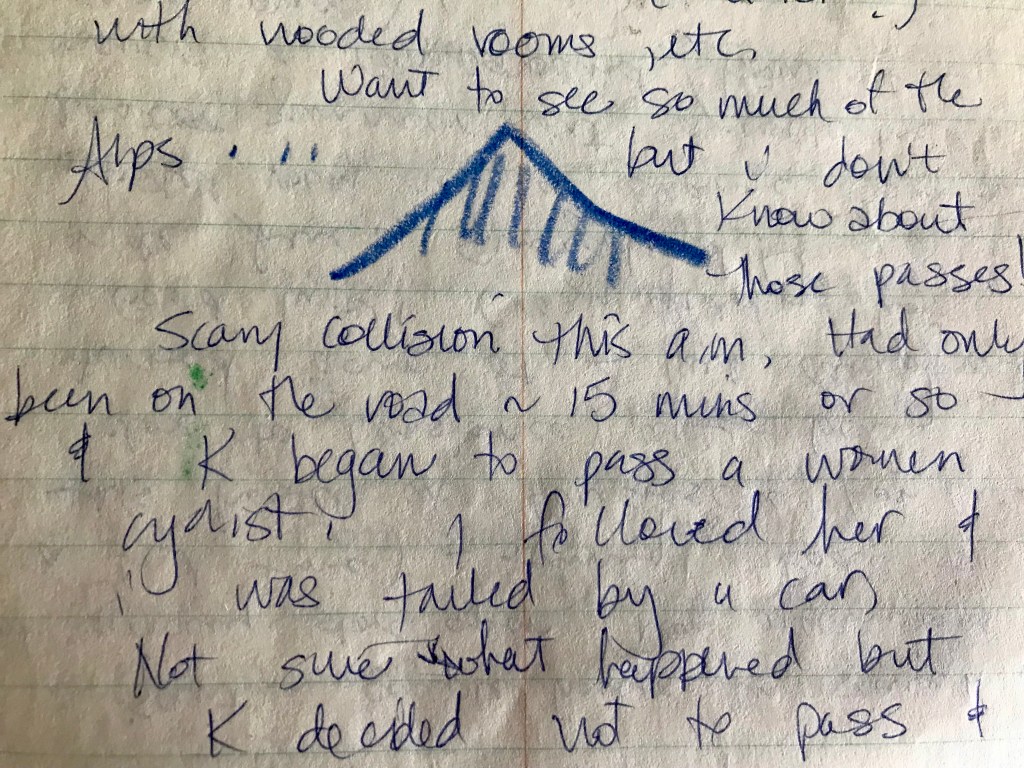 with wooded rooms, etc,
Want to see so much of the
Alps . . . but i don't
Know about
those passes!
Scary collision this a.m, Had only
been on the road ~ 15 mins or so -
& K began to pass a women
cyclist, I followed her &
i was tailed by a car,
Not sure what happened but
K decided not to pass &